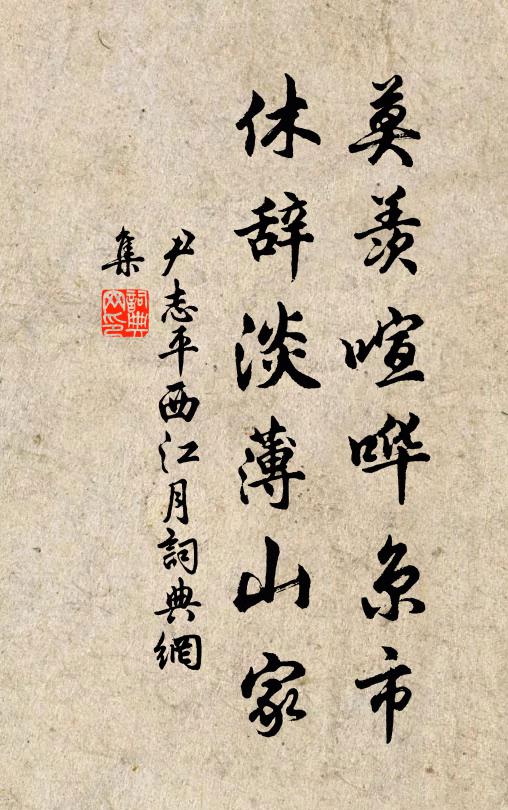 莫羡喧哗京市
休辞淡薄山家
尹志平西江月詞典網
集
詞典網印